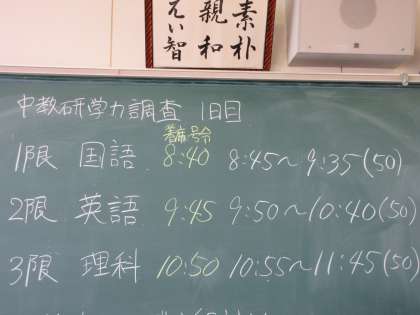 素朴
親和
えい智
中教研学力調査 1日目
着席・号令
1限 国語 8:40 8:45～9:35(50)
2限 英語 9:45 9:50～10:40(50)
3限 理科 10:50 10:55～11:45(50)